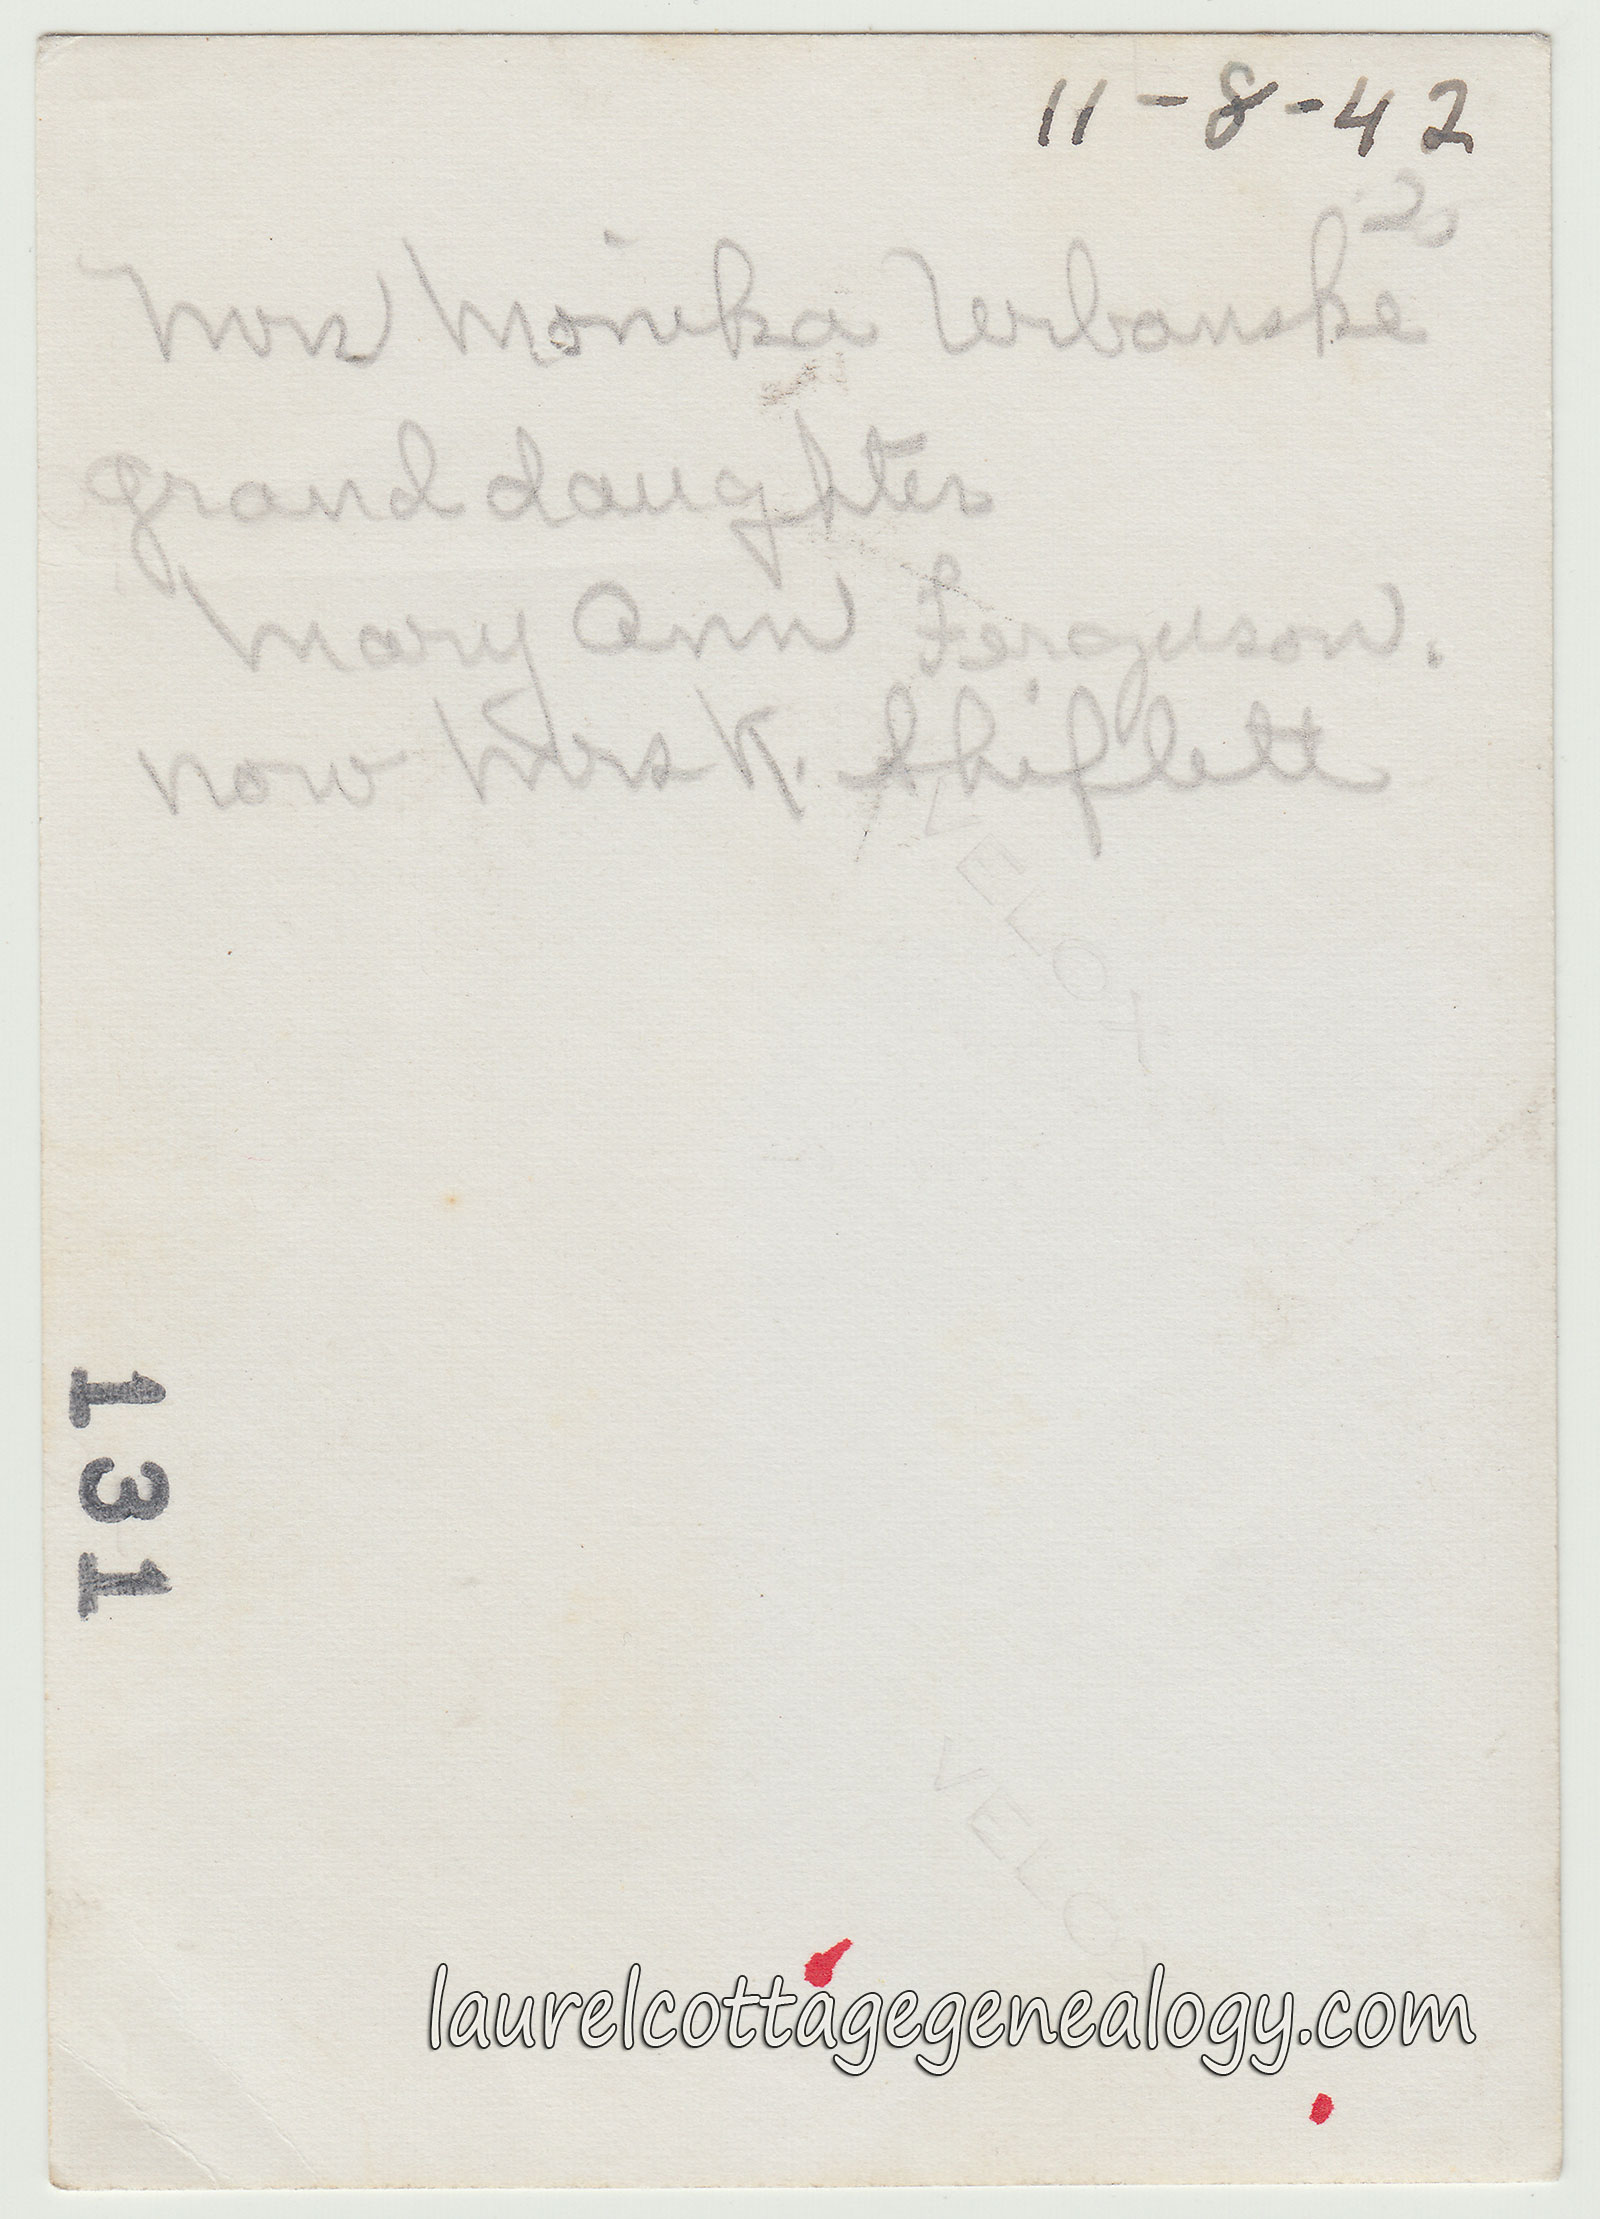 11-8-42
20
Mrs Monika Urbanske
granddaughter
Mary Ann Ferguson.
now Mrs K. Shiflett
VELOX
131
VELOX
laurelcottagegenealogy.com